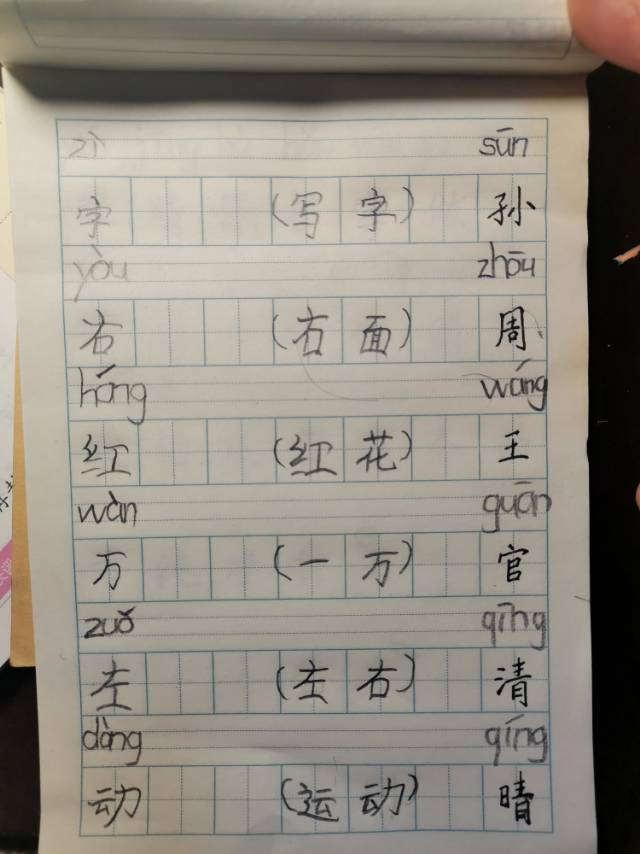 zì sūn
字 (写字) 孙
yòu zhōu
右 (右面) 周
hóng wáng
红 (红花) 王
wàn guān
万 (一万) 官
zuǒ qīng
左 (左右) 清
dòng qíng
动 (运动) 晴